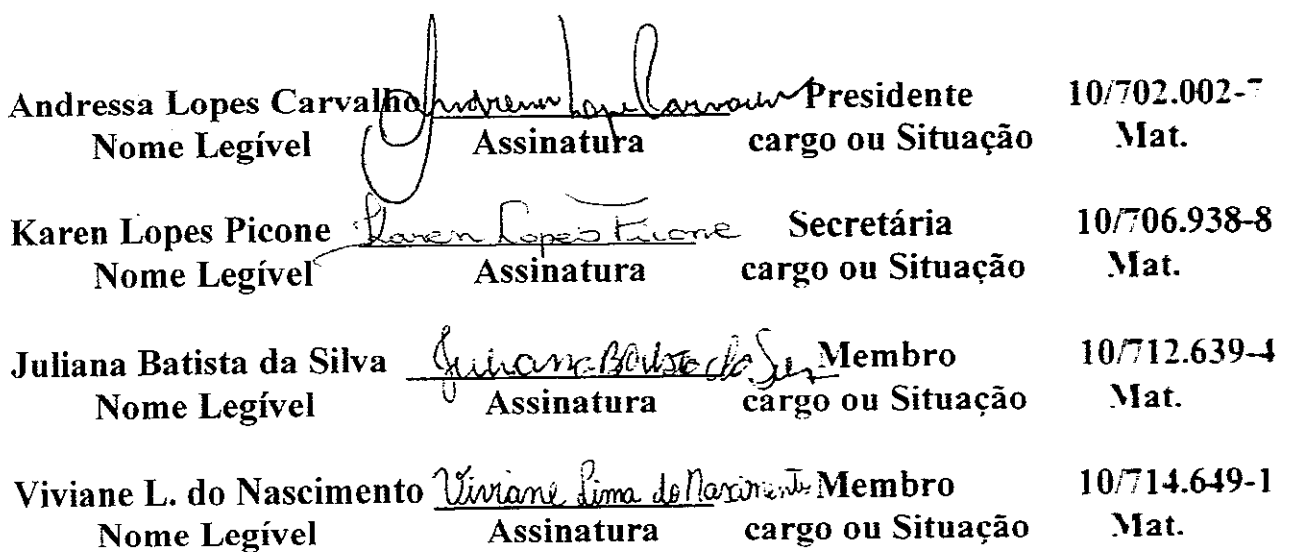 Andressa Lopes Carvalho Andressa Lopes Carvalho Presidente 10/702.002-7
Nome Legível Assinatura cargo ou Situação Mat.
Karen Lopes Picone Karen Lopes Picone Secretária 10/706.938-8
Nome Legível Assinatura cargo ou Situação Mat.
Juliana Batista da Silva Juliana Batista da Silva Membro 10/712.639-4
Nome Legível Assinatura cargo ou Situação Mat.
Viviane L. do Nascimento Viviane Lima do Nascimento Membro 10/714.649-1
Nome Legível Assinatura cargo ou Situação Mat.